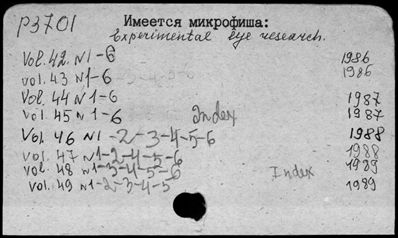 P3701 Имеется микрофиша:
Experimental eye research.
Vol. 42. N1-6 1986
vol. 43 N1-6 1986
Vol. 44 N1-6 1987
vol. 45 N1-6 Index 1987
Vol. 46 N1-2-3-4-5-6 1988
vol. 47 N1-2-4-5-6 1988
vol. 48 N1-3-4-5-6 Index 1989
vol. 49 N1-2-3-4-5 1989